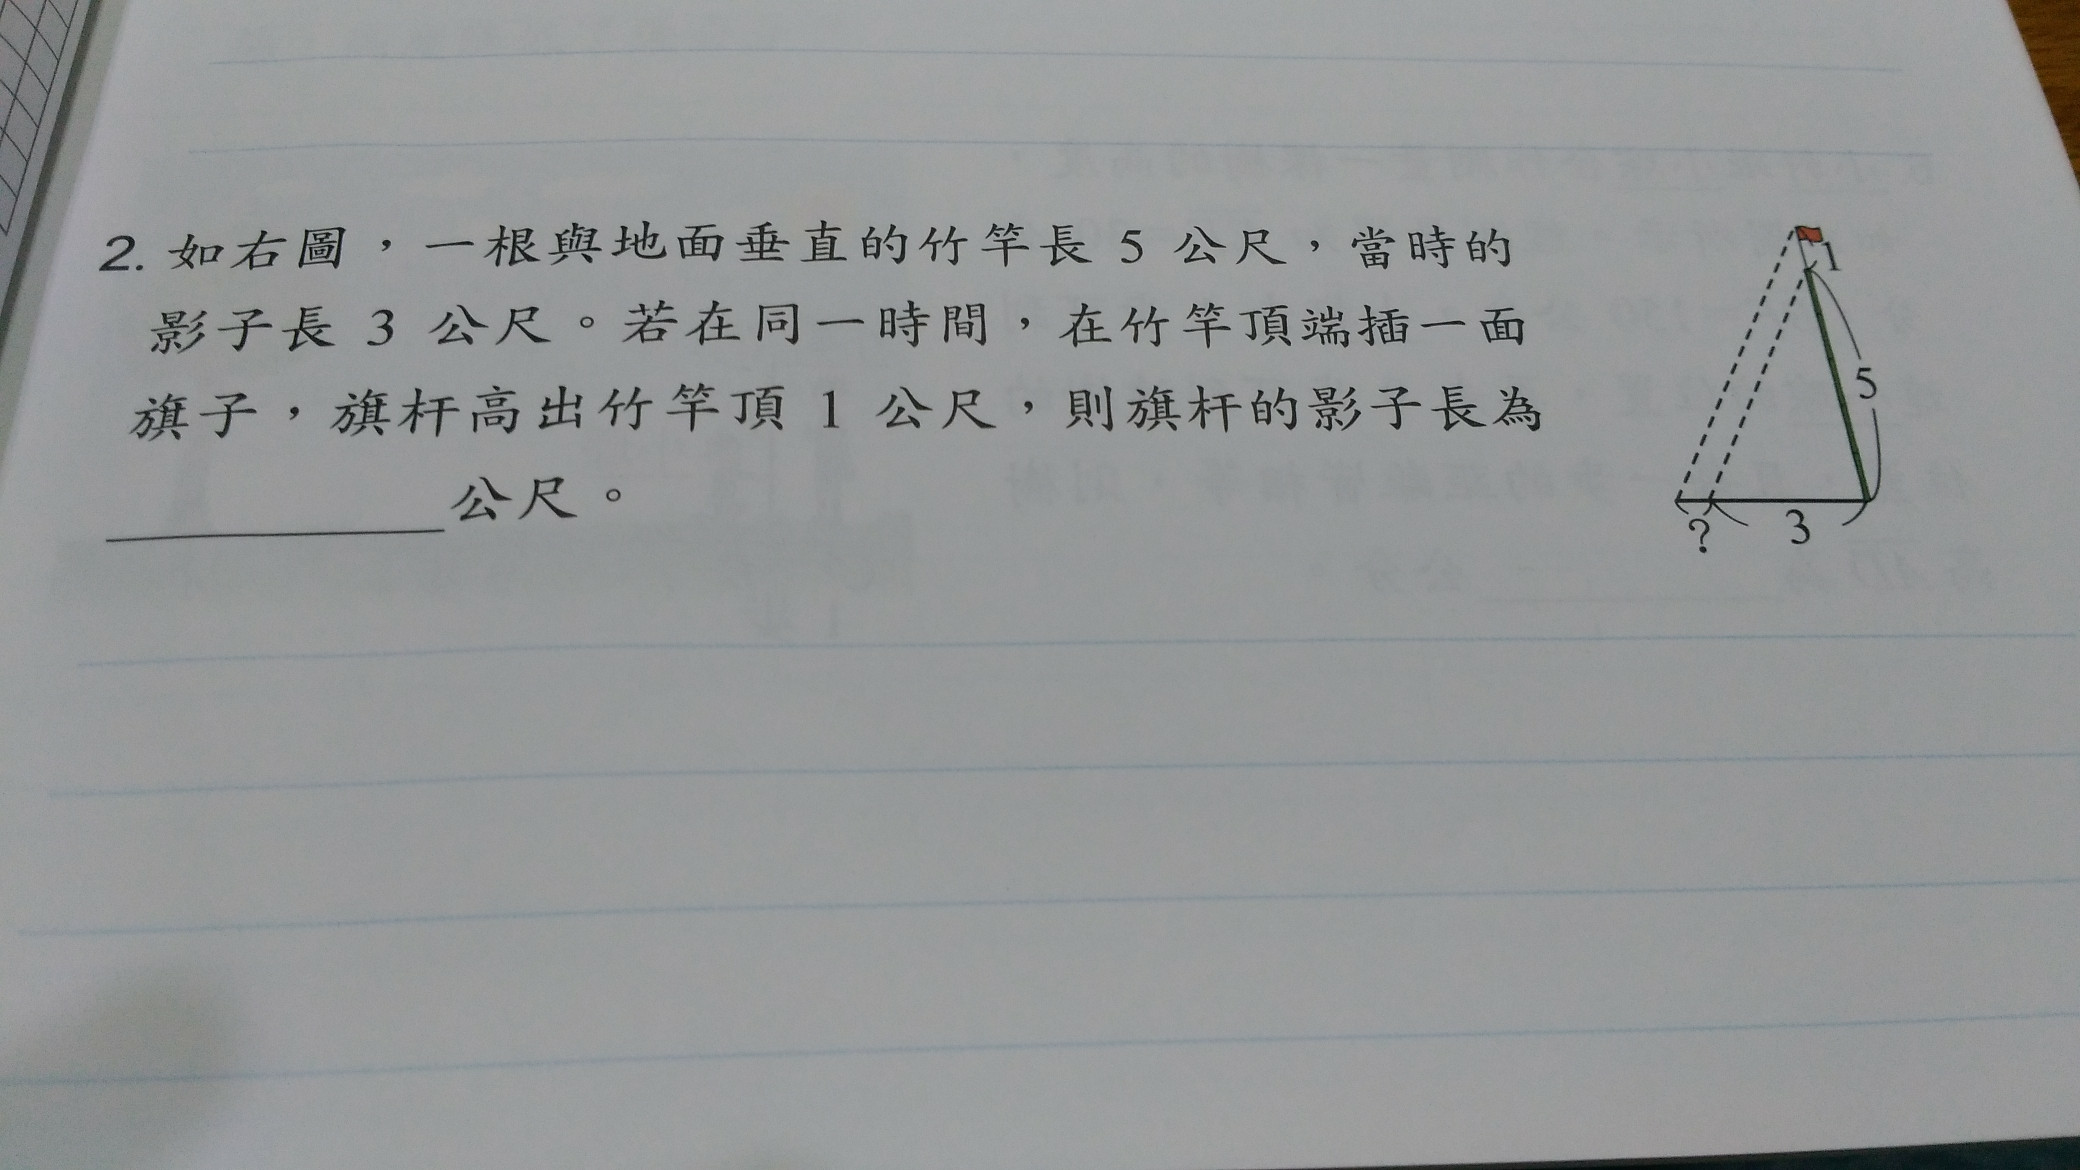 2. 如右圖，一根與地面垂直的竹竿長 5 公尺，當時的
影子長 3 公尺。若在同一時間，在竹竿頂端插一面
旗子，旗杆高出竹竿頂 1 公尺，則旗杆的影子長為
公尺。
1
5
?
3